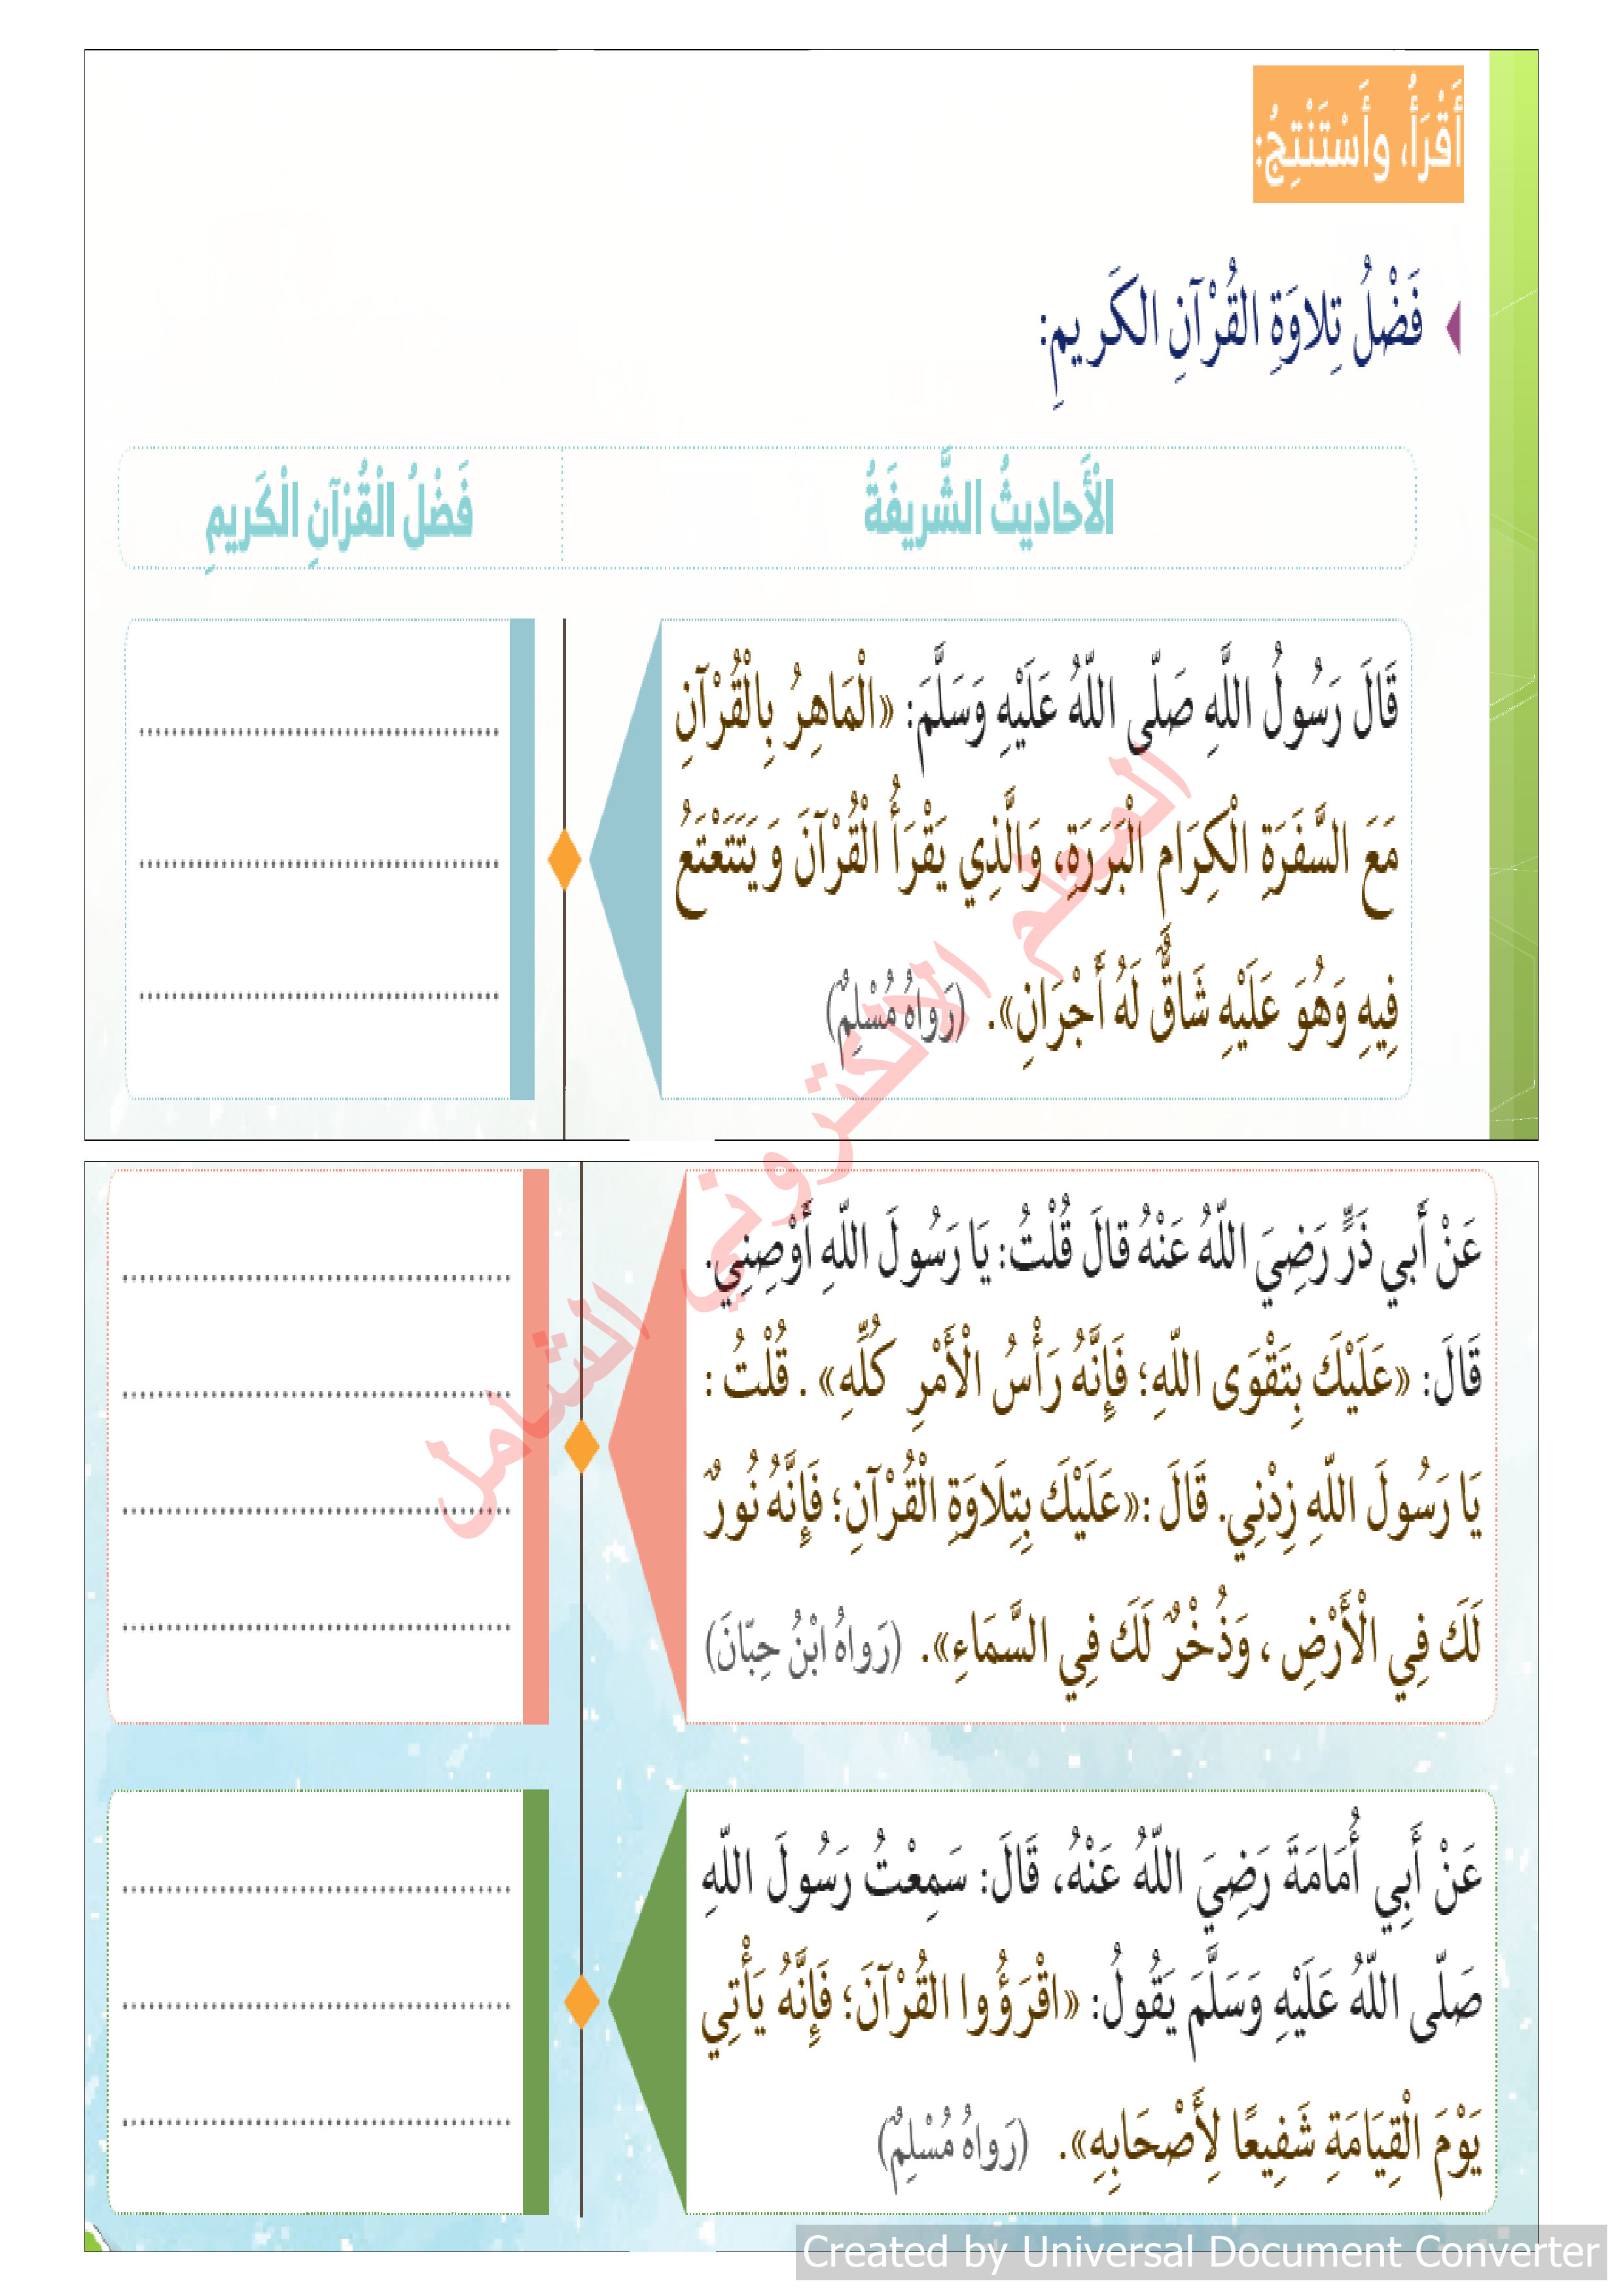 أَقْرَأُ، وأَسْتَنْتِجُ:
فَضْلُ تِلاوَةِ القُرْآنِ الكَريمِ:
الْأَحاديثُ الشَّريفَةُ
فَضْلُ الْقُرْآنِ الْكَريمِ
قَالَ رَسُولُ اللَّهِ صَلّى اللّهُ عَلَيْهِ وَسَلَّمَ: «الْمَاهِرُ بِالْقُرْآنِ
مَعَ السَّفَرَةِ الْكِرَامِ الْبَرَرَةِ، وَالَّذِي يَقْرَأُ الْقُرْآنَ وَيَتَتَعْتَعُ
فِيهِ وَهُوَ عَلَيْهِ شَاقٌّ لَهُ أَجْرَانِ». (رَواهُ مُسْلِمٌ)
عَنْ أَبي ذَرٍّ رَضِيَ اللّهُ عَنْهُ قالَ قُلْتُ: يَا رَسُولَ اللّهِ أَوْصِنِي.
قَالَ: «عَلَيْكَ بِتَقْوَى اللّهِ؛ فَإِنَّهُ رَأْسُ الْأَمْرِ كُلِّهِ» . قُلْتُ :
يَا رَسُولَ اللّهِ زِدْنِي. قَالَ :«عَلَيْكَ بِتِلَاوَةِ الْقُرْآنِ؛ فَإِنَّهُ نُورٌ
لَكَ فِي الْأَرْضِ ، وَذُخْرٌ لَكَ فِي السَّمَاءِ». (رَواهُ ابْنُ حِبّانَ)
عَنْ أَبِي أُمَامَةَ رَضِيَ اللّهُ عَنْهُ، قَالَ: سَمِعْتُ رَسُولَ اللّهِ
صَلّى اللّهُ عَلَيْهِ وَسَلَّمَ يَقُولُ: «اقْرَؤُوا القُرْآنَ؛ فَإِنَّهُ يَأْتِي
يَوْمَ الْقِيَامَةِ شَفِيعًا لِأَصْحَابِهِ». (رَواهُ مُسْلِمٌ)
المعلم الالكتروني الشامل
Created by Universal Document Converter